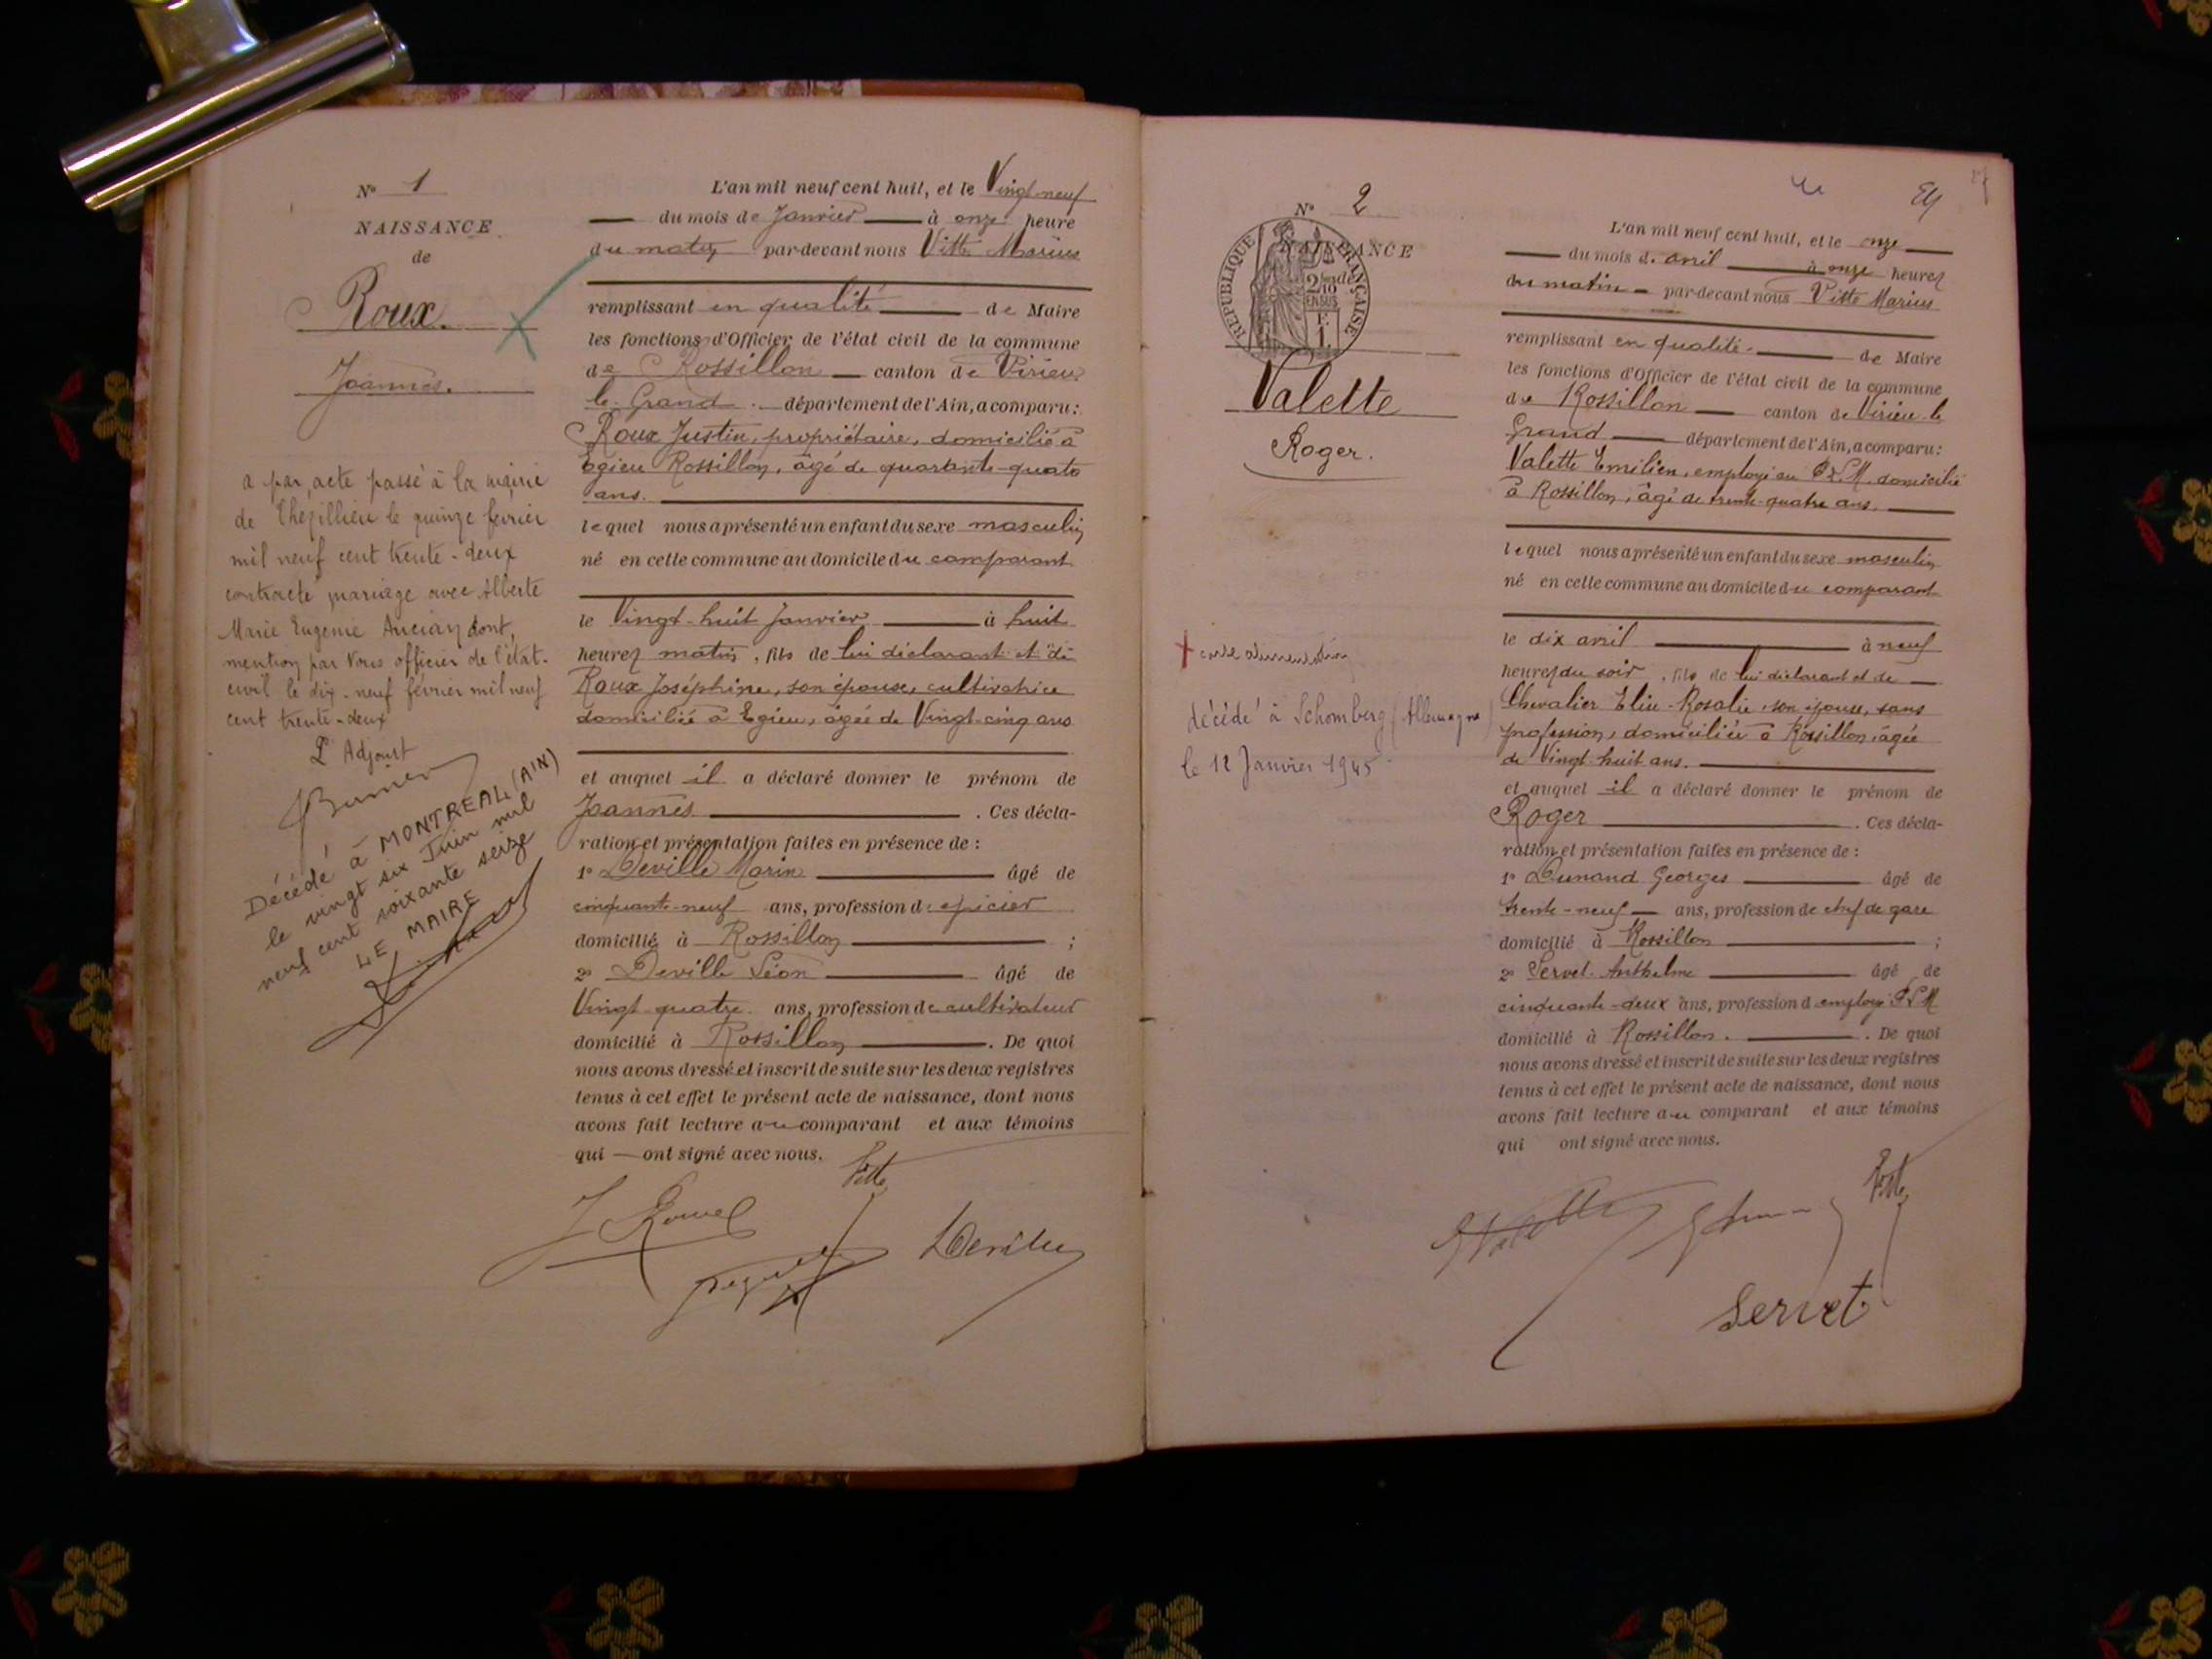 N° 1
NAISSANCE
de
Roux.
Joannès.
a par acte passé à la mairie
de Thézillieu le quinze février
mil neuf cent trente-deux
contracté mariage avec Alberte
Marie Eugenie Ancian dont
mention par Nous officier de l'état-
civil le dix-neuf février mil neuf
cent trente-deux
L'Adjoint
Décédé à MONTREAL (AIN)
le vingt six Juin mil
neuf cent soixante seize
LE MAIRE
L'an mil neuf cent huit, et le Vingt-neuf
du mois de Janvier à onze heure
du matin par-devant nous Vitte Marius
remplissant en qualité de Maire
les fonctions d'Officier de l'état civil de la commune
de Rossillon canton de Virieu
le Grand. département de l'Ain, a comparu:
Roux Justin, propriétaire, domicilié à
Egieu Rossillon, âgé de quarante-quatre
ans.
lequel nous a présenté un enfant du sexe masculin
né en cette commune au domicile du comparant
le Vingt-huit Janvier à huit
heures matin, fils de lui déclarant et de
Roux Joséphine, son épouse, cultivatrice
domiciliée à Egieu, âgée de Vingt-cinq ans
et auquel il a déclaré donner le prénom de
Joannès . Ces décla-
ration et présentation faites en présence de :
1° Deville Marin âgé de
cinquante-neuf ans, profession d'épicier
domicilié à Rossillon ;
2° Deville Léon âgé de
Vingt quatre ans, profession de cultivateur
domicilié à Rossillon . De quoi
nous avons dressé et inscrit de suite sur les deux registres
tenus à cet effet le présent acte de naissance, dont nous
avons fait lecture au comparant et aux témoins
qui — ont signé avec nous.
Vitte
Deville
N° 2
NAISSANCE
de
REPUBLIQUE FRANÇAISE
2/10
EN SUS
F.
1.
Valette
Roger.
+ carte alimentation
décédé à Schomberg (Allemagne)
le 12 Janvier 1945
L'an mil neuf cent huit, et le onze
du mois d'avril à onze heures
du matin par-devant nous Vitte Marius
remplissant en qualité de Maire
les fonctions d'Officier de l'état civil de la commune
de Rossillon canton de Virieu le
Grand département de l'Ain, a comparu:
Valette Emilien, employé au P.L.M. domicilié
à Rossillon, âgé de trente-quatre ans.
lequel nous a présenté un enfant du sexe masculin
né en cette commune au domicile du comparant
le dix avril à neuf
heures du soir, fils de lui déclarant et de
Chevalier Elise-Rosalie, son épouse, sans
profession, domiciliée à Rossillon, âgée
de Vingt-huit ans.
et auquel il a déclaré donner le prénom de
Roger . Ces décla-
ration et présentation faites en présence de :
1° Dunand Georges âgé de
trente-neuf ans, profession de chef de gare
domicilié à Rossillon ;
2° Servet Anthelme âgé de
cinquante-deux ans, profession d'employé PLM
domicilié à Rossillon. . De quoi
nous avons dressé et inscrit de suite sur les deux registres
tenus à cet effet le présent acte de naissance, dont nous
avons fait lecture au comparant et aux témoins
qui ont signé avec nous.
Vitte
Servet